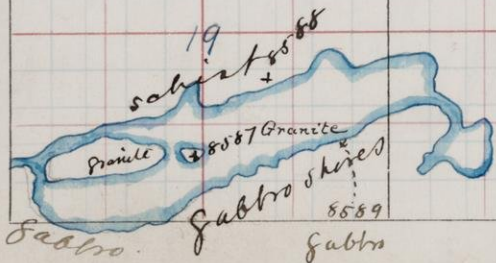 19
schist 8588
granite
8587 Granite
gabbro shores
8589
gabbro.
gabbro